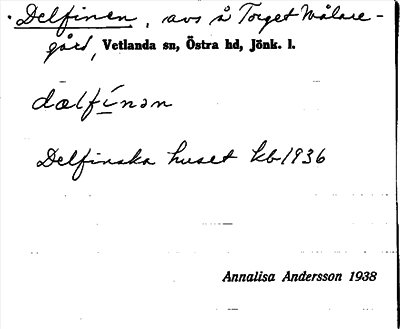 · Delfinen, avs å Torget Målare-
gård, Vetlanda sn, Östra hd, Jönk. l.
dælfínən
Delfinska huset kb 1936
Annalisa Andersson 1938